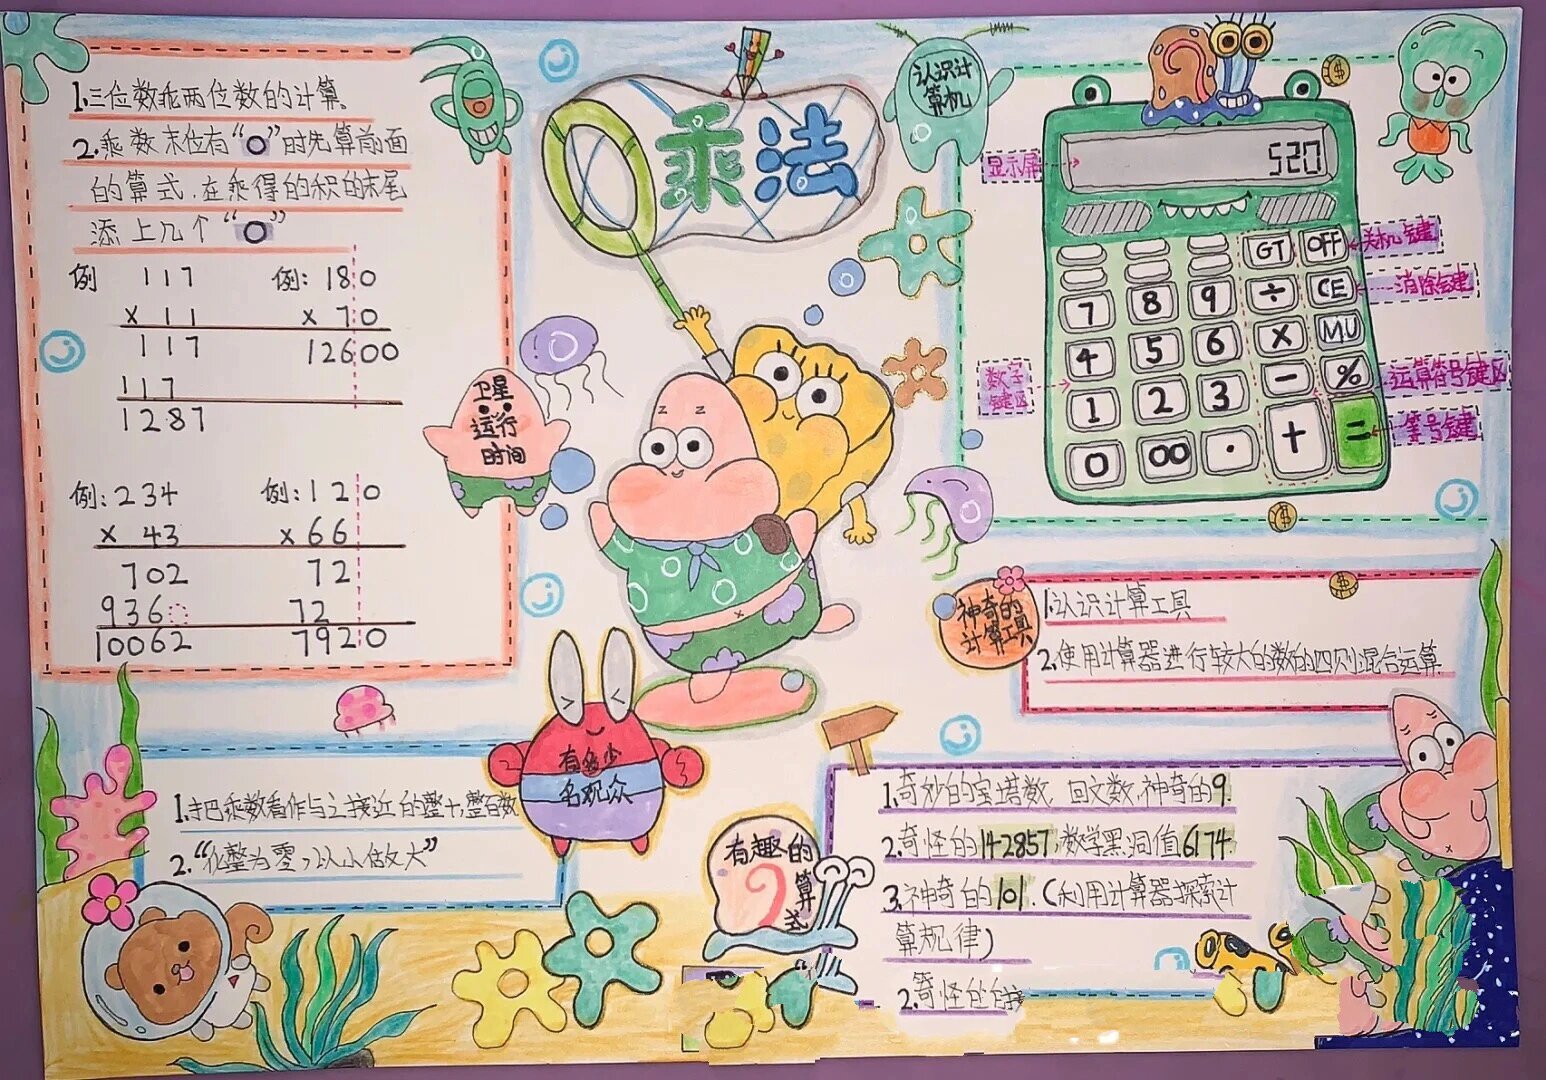 乘法
1.三位数乘两位数的计算.
2.乘数末位有“0”时先算前面
的算式.在乘得的积的末尾
添上几个“0”
例 117
× 11
117
117
1287
例:180
× 70
12600
例:234
× 43
702
936
10062
例:120
×66
72
72
7920
卫星
运行
时间
认识计
算机
显示屏
520
关机键
消除键
数字
键区
运算符号键区
等号键
GT OFF
7 8 9 ÷ CE
4 5 6 × MU
1 2 3 - %
0 00 · + =
神奇的
计算工具
1.认识计算工具
2.使用计算器进行较大的数的四则混合运算.
有多少
名观众
1.把乘数看作与之接近的整十,整百数
2.“化整为零,以小做大”
有趣的
算式
1.奇妙的宝塔数 回文数,神奇的9.
2.奇怪的142857,数学黑洞值6174.
3.神奇的101.(利用计算器探索计
算规律)
2.奇怪的